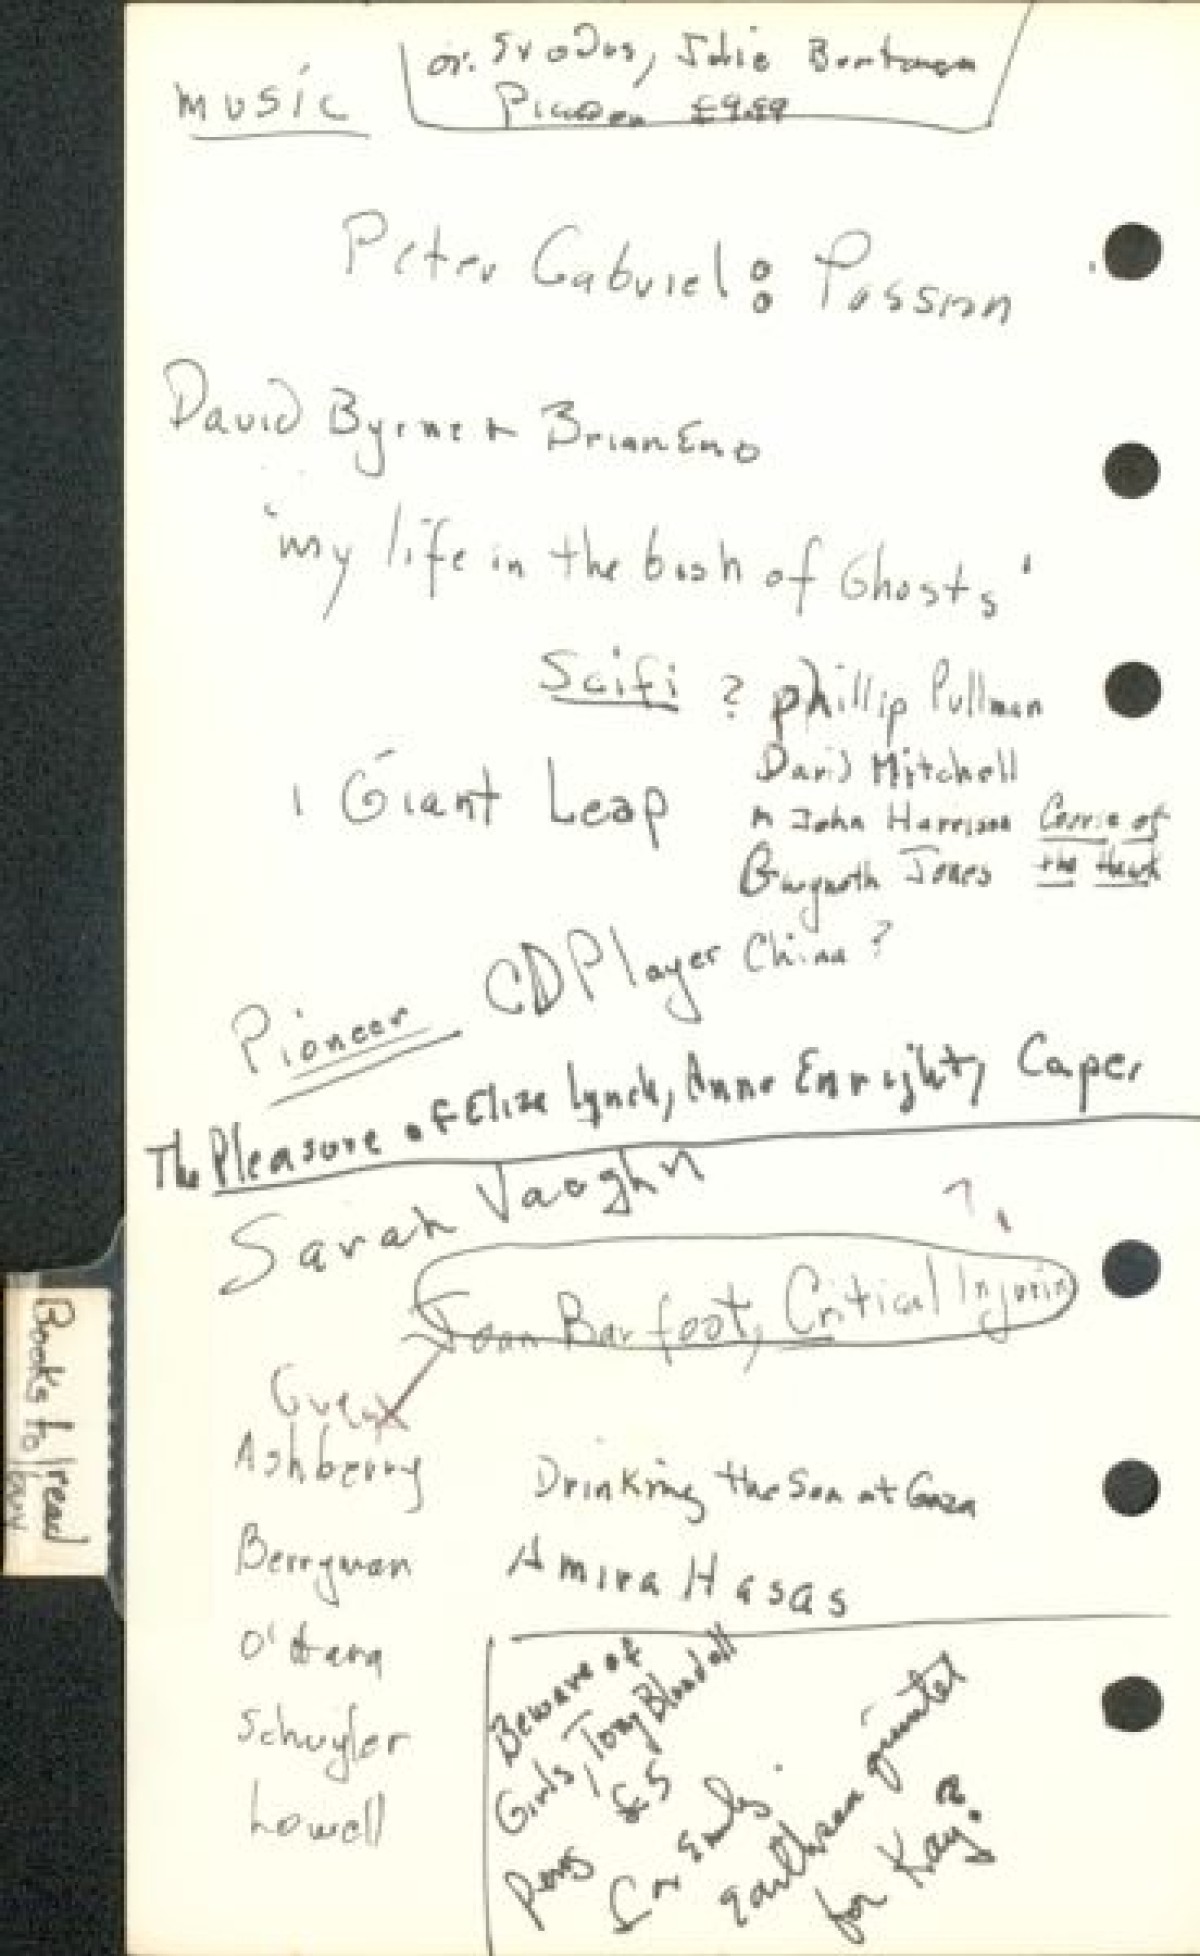 or. Exodus, Julie Bertagna
Picador £9.99
music
Peter Gabriel: Passion
David Byrne + Brian Eno
'my life in the bush of Ghosts'
Scifi ? Phillip Pullman
David Mitchell
1 Giant Leap
M John Harrison Corrie of
Gwyneth Jones the Hawk
CD Player China?
Pioneer
The Pleasure of Eliza Lynch, Anne Enright, Cape,
Sarah Vaughn
?
Joan Barfoot, Critical Injuries
Guest
Ashberry
Drinking the Sea at Gaza
Berryman
Amira Hasas
O'Hara
Schuyler
Lowell
Beware of
Girls, Tony Blundell
£5
for Emily
earthsea quartet
for Kay?
Books to read